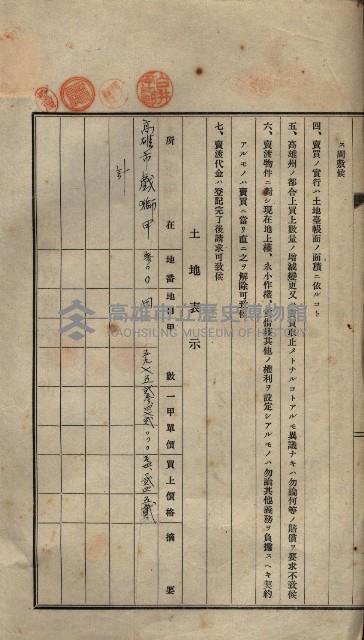 ス間敷候
四、賣買ノ實行ハ土地臺帳面ノ面積ニ依ルコト
五、高雄州ノ都合上買上數量ノ増減變更又ハ買取止メトナルコトアルモ異議ナキハ勿論何等ノ賠償ヲ要求不致候
六、賣渡物件ニ對シ現在地上權、永小作權、賃借權其他ノ權利ヲ設定シアルモノハ勿論其他義務ヲ負擔スヘキ契約
アルモノハ賣買ニ當リ直ニ之ヲ解除可致候
七、賣渡代金ハ登記完了後請求可致候
土地表示
所在 地番 地目 甲數 一甲單價 買上價格 摘要
高雄市戲獅甲
計
高雄市立歷史博物館
KAOHSIUNG MUSEUM OF HISTORY